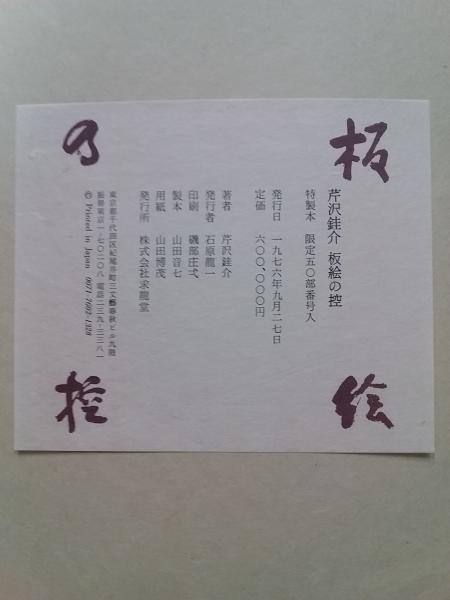 板
絵
の
控
芹沢銈介 板絵の控
特製本 限定五〇部番号入
発行日 一九七六年九月二七日
定価 六〇〇、〇〇〇円
著者 芹沢銈介
発行者 石原龍一
印刷 磯部庄弍
製本 山田音七
用紙 山田博茂
発行所 株式会社求龍堂
東京都千代田区紀尾井町三文藝春秋ビル九階
振替東京一-七〇二〇八 電話二三九-三三八一
© Printed in Japan 0071-7692-1328